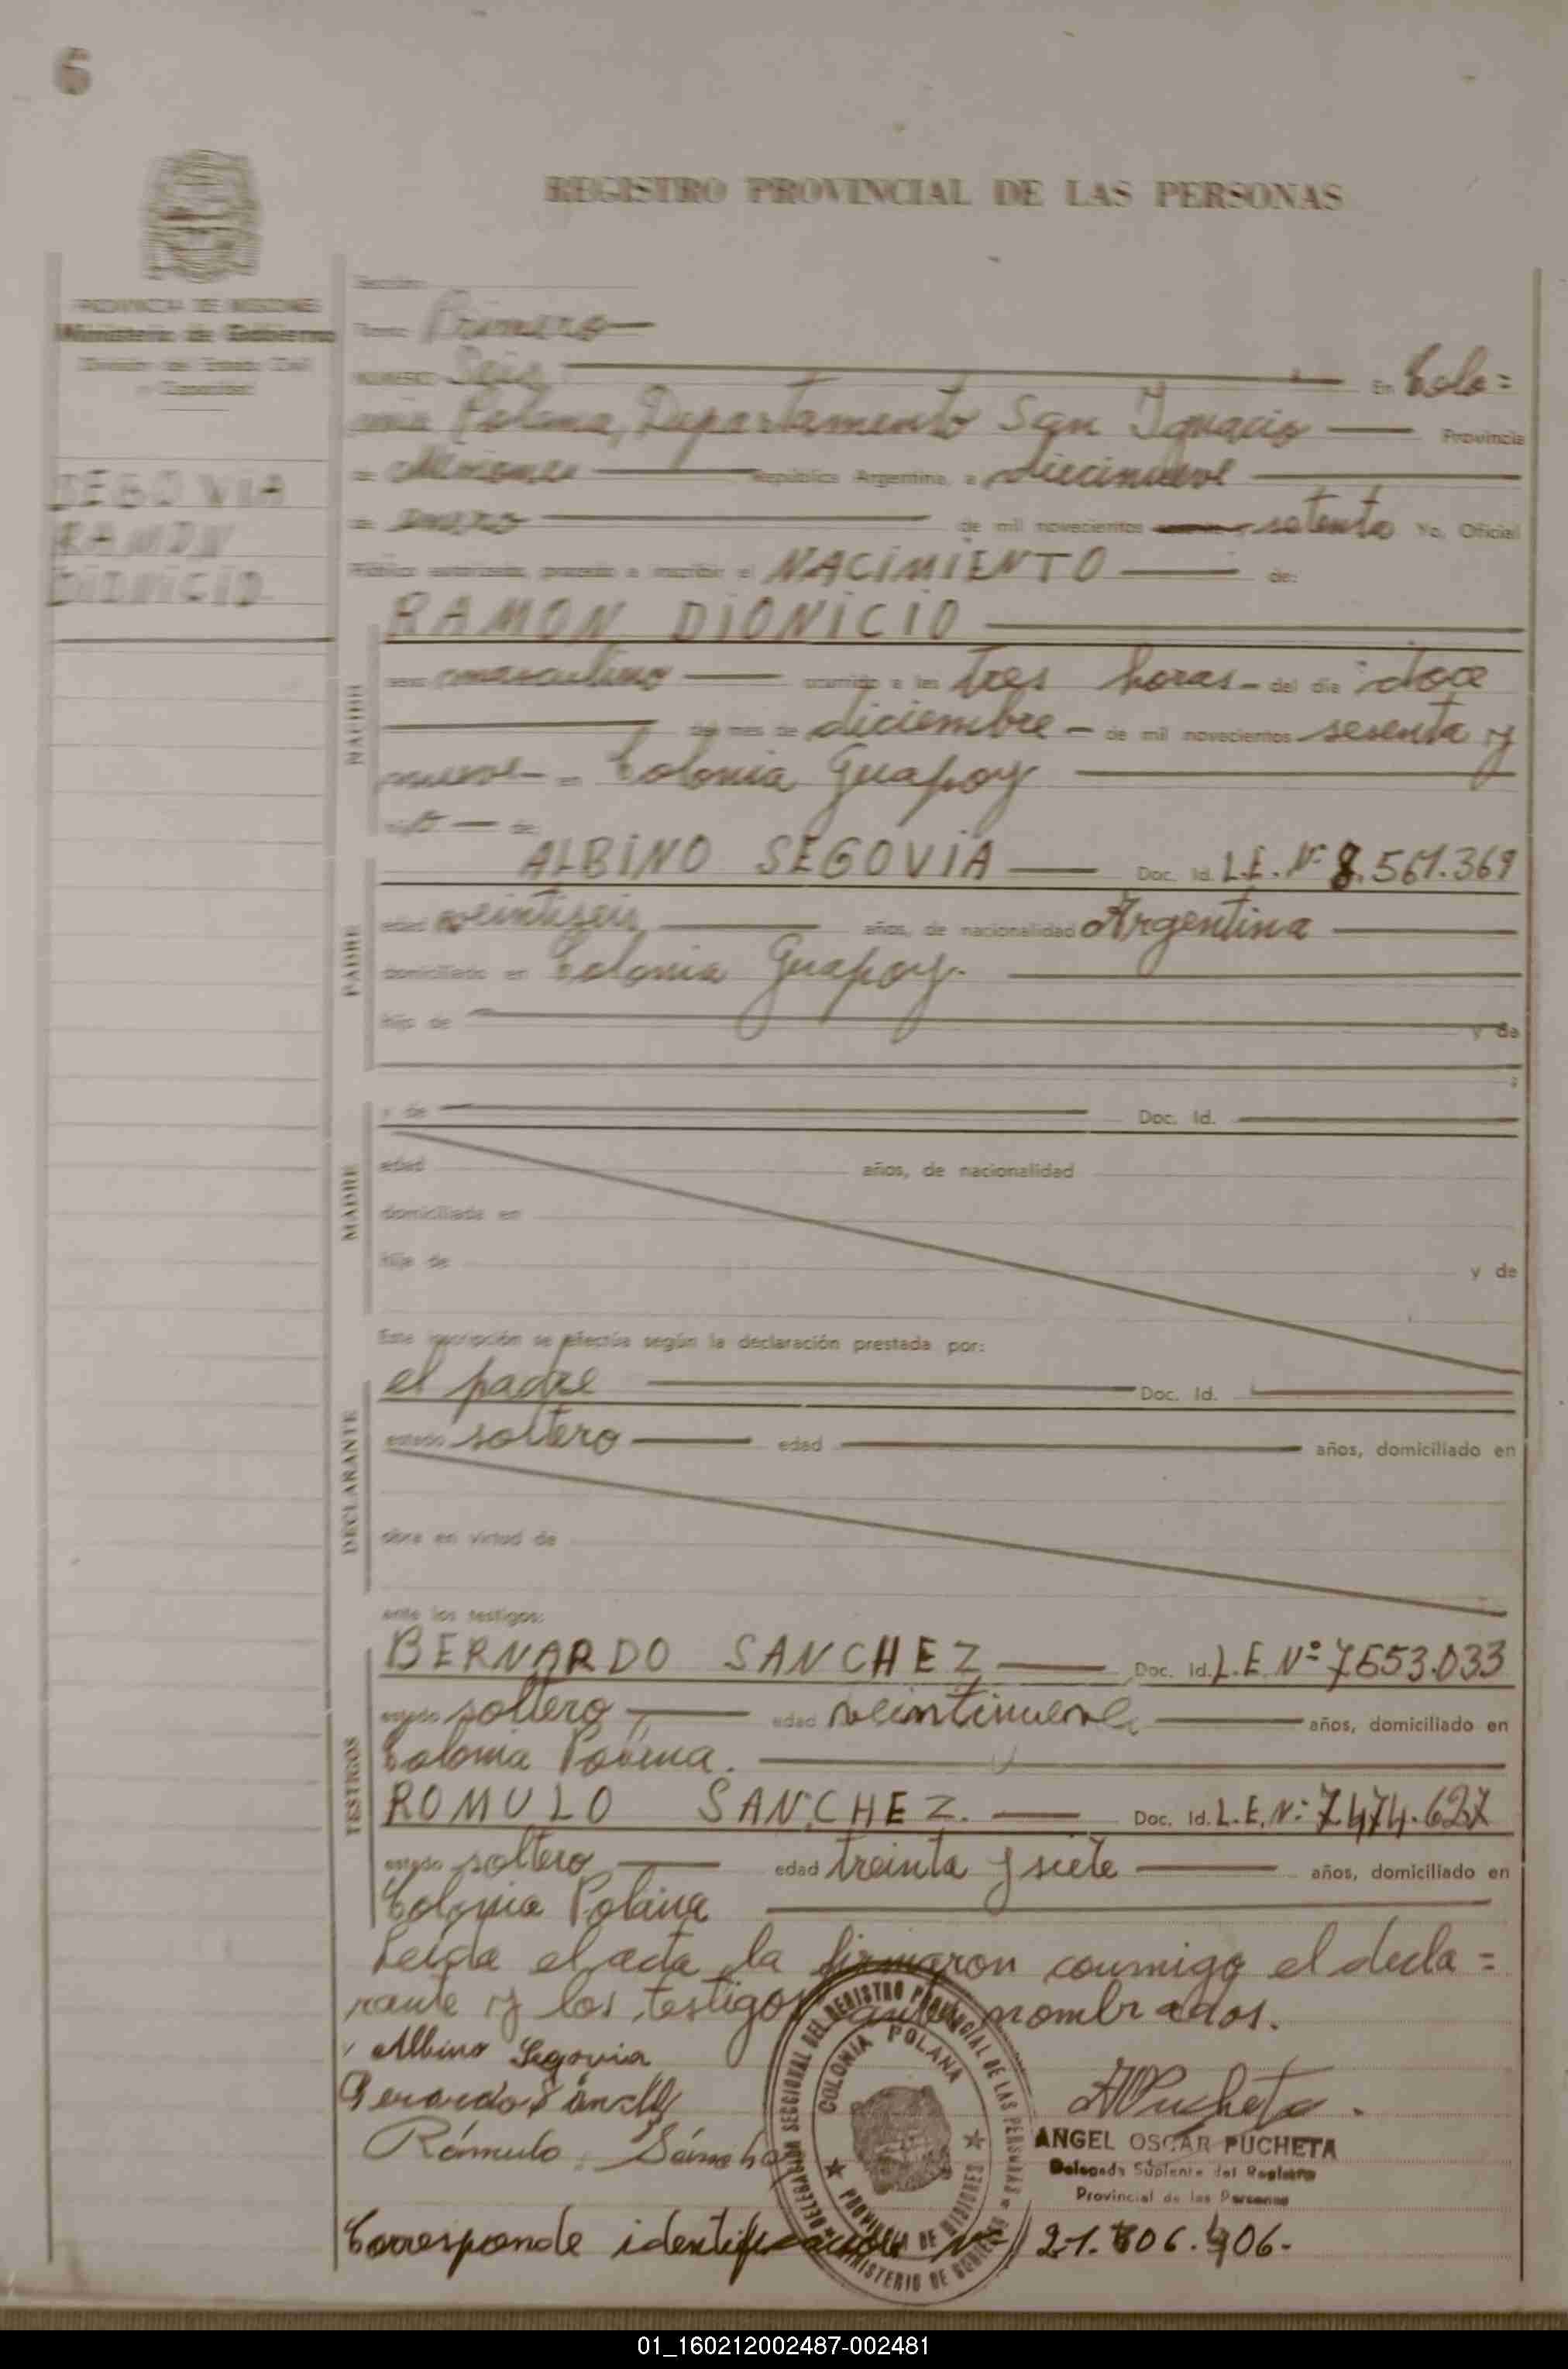 6
REGISTRO PROVINCIAL DE LAS PERSONAS
PROVINCIA DE MISIONES
Ministerio de Gobierno
División del Estado Civil
y Capacidad
SEGOVIA
RAMON
DIONICIO
Sección
Tomo Primero
NUMERO Seis En Colo=
nia Polana, Departamento San Ignacio Provincia
de Misiones República Argentina, a diecinueve
de enero de mil novecientos setenta Yo, Oficial
Público autorizado, procedo a inscribir el NACIMIENTO de:
NACIDO
RAMON DIONICIO
sexo masculino ocurrido a las tres horas del día doce
del mes de diciembre de mil novecientos sesenta y
nueve en Colonia Guapoy
hijo de
PADRE
ALBINO SEGOVIA Doc. Id. L.E. Nº 8.561.369
edad veintiseis años, de nacionalidad Argentina
domiciliado en Colonia Guapoy.
hijo de y de
MADRE
y de Doc. Id.
edad años, de nacionalidad
domiciliada en
hija de y de
Esta inscripción se efectúa según la declaración prestada por:
DECLARANTE
el padre Doc. Id.
estado soltero edad años, domiciliado en
obra en virtud de
ante los testigos:
TESTIGOS
BERNARDO SANCHEZ Doc. Id. L.E. Nº 7653.033
estado soltero edad veintinueve años, domiciliado en
Colonia Polana.
ROMULO SANCHEZ. Doc. Id. L.E. Nº 7.474.627
estado soltero edad treinta y siete años, domiciliado en
Colonia Polana
Leida el acta la firmaron conmigo el decla=
rante y los testigos ante nombrados.
Albino Segovia
Gerardo Sánchez
Rómulo Sánchez
DELEGACION SECCIONAL DEL REGISTRO PROVINCIAL DE LAS PERSONAS
MINISTERIO DE GOBIERNO
COLONIA POLANA
PROVINCIA DE MISIONES
APucheta.
ANGEL OSCAR PUCHETA
Delegado Suplente del Registro
Provincial de las Personas
Corresponde identificación Nº 21.306.406.-
01_160212002487-002481